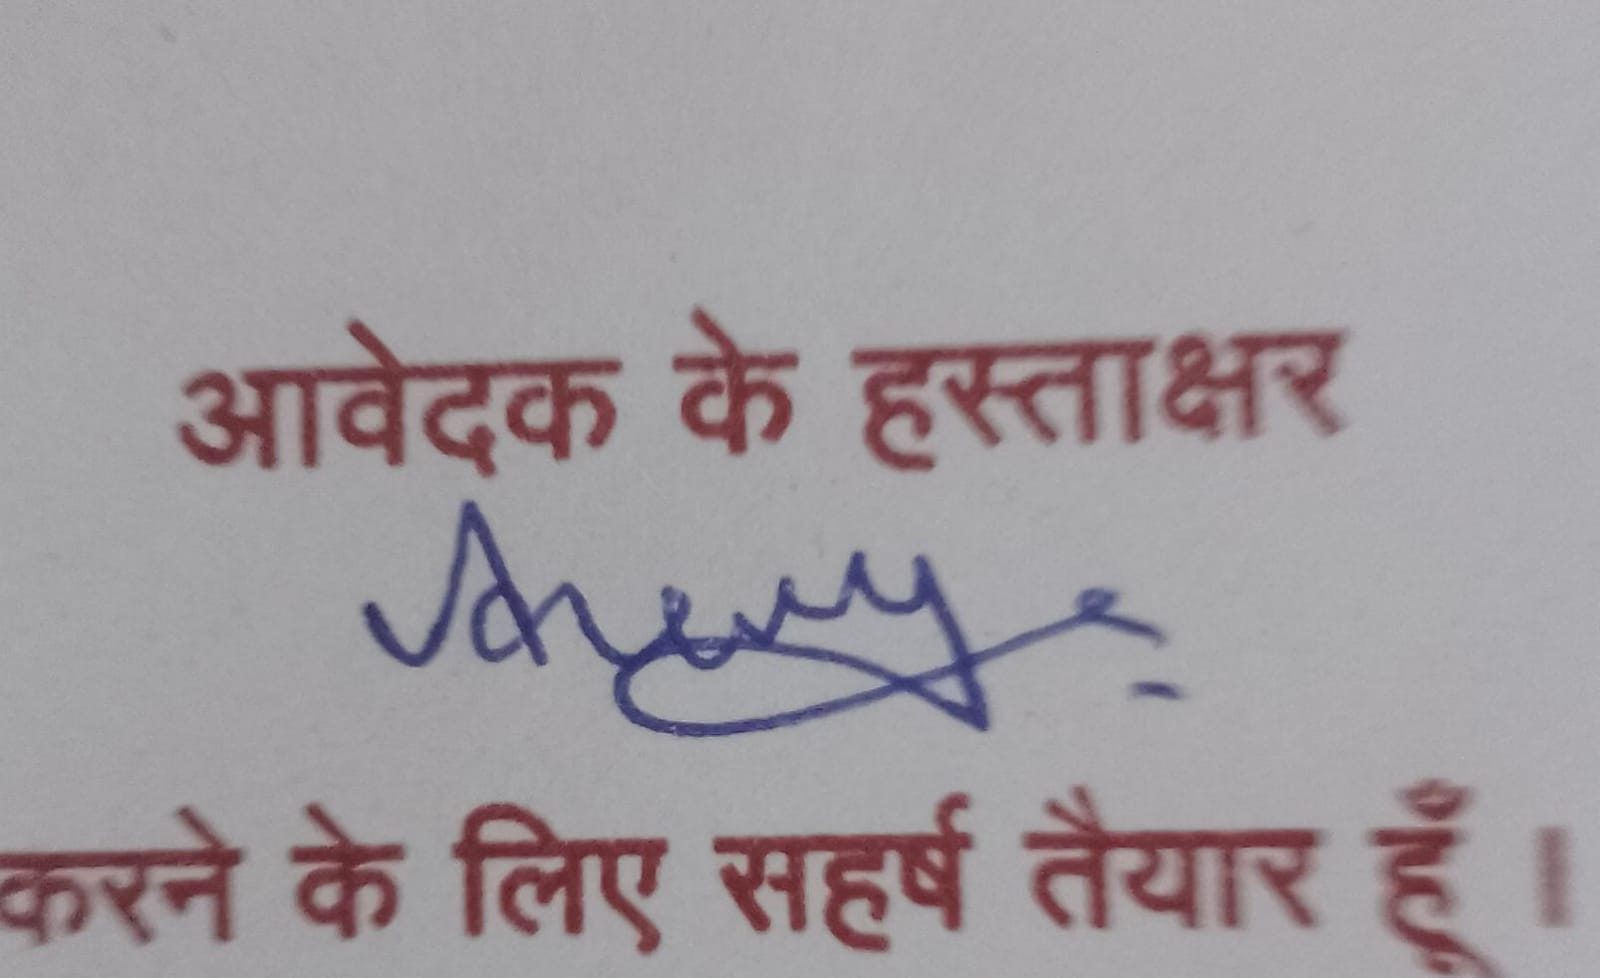 आवेदक के हस्ताक्षर
करने के लिए सहर्ष तैयार हूँ ।